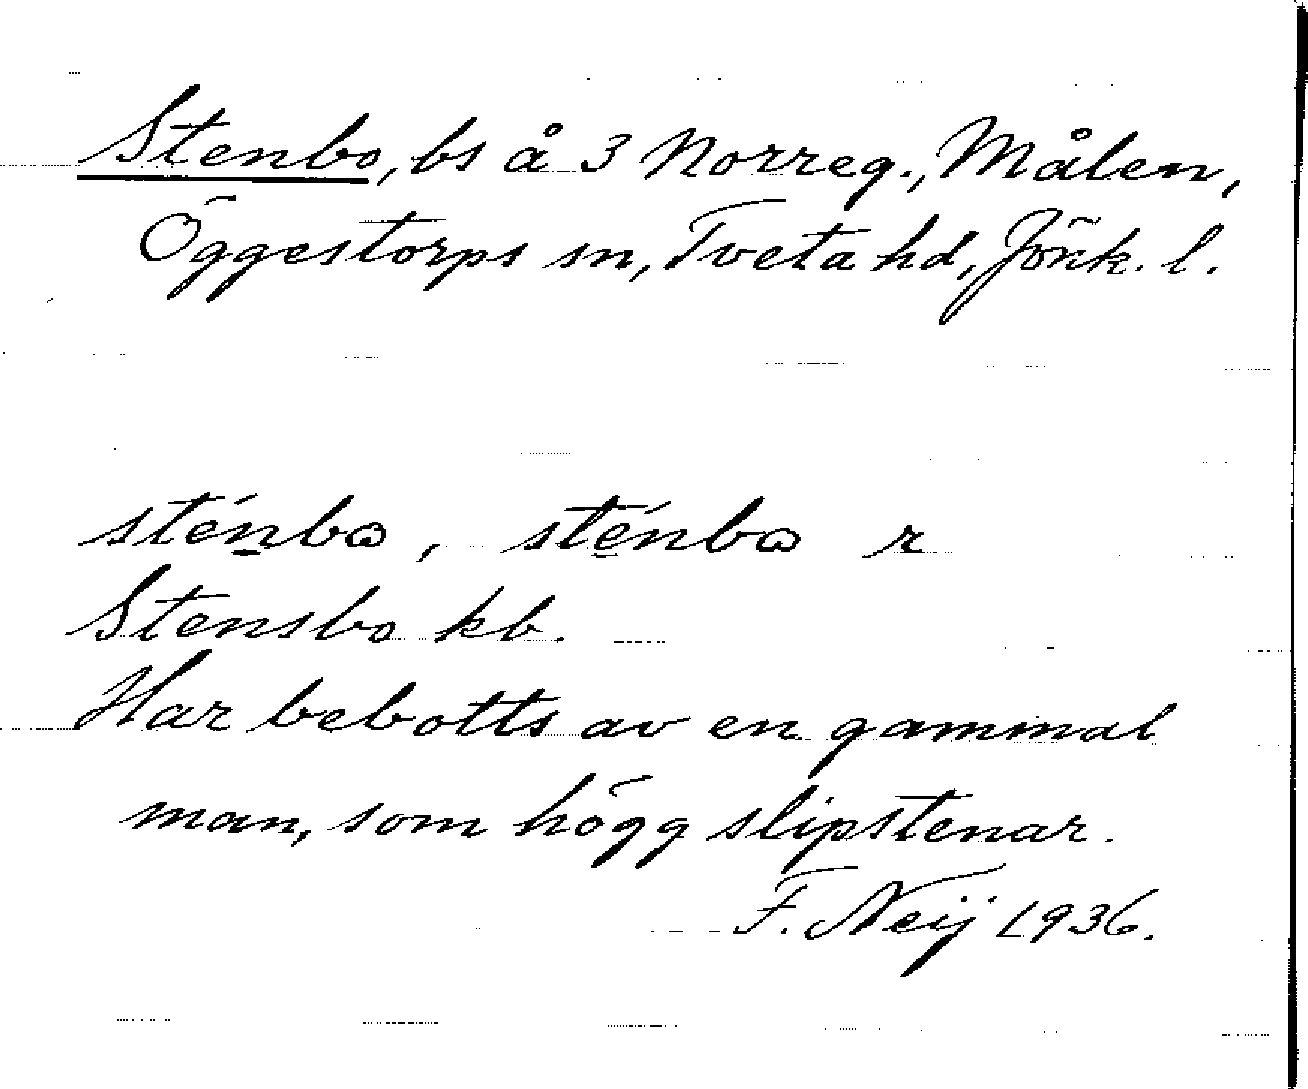 Stenbo, bs å 3 Norreg., Målen,
Öggestorps sn, Tveta hd, Jönk. l.
sténbω, sténbω r
Stensbo kb.
Har bebotts av en gammal
man, som högg slipstenar.
F. Neij 1936.